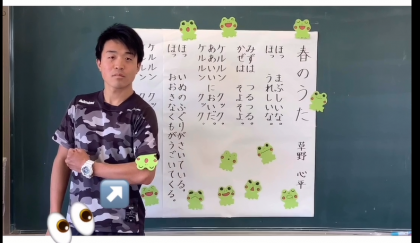 春のうた
草野 心平
ほっ まぶしいな。
ほっ うれしいな。
みずは つるつる。
かぜは そよそよ。
ケルルン クック。
ああいいにおいだ。
ケルルン クック。
ほっ いぬのふぐりがさいている。
ほっ おおきなくもがうごいてくる。
ケルルン クック。
ケルルン クッ